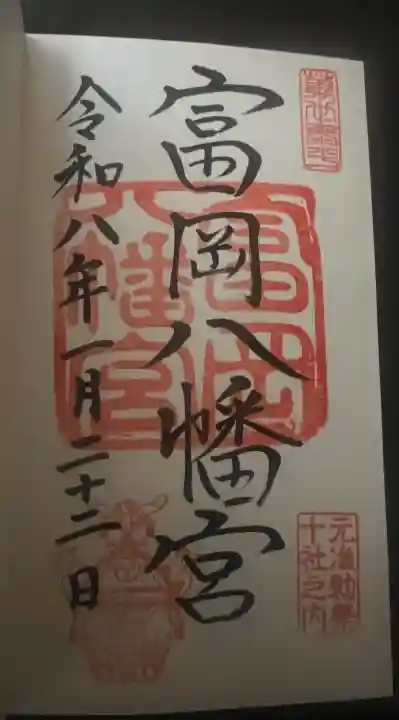 富岡八幡宮
令和八年一月二十二日
富岡
八幡宮
元准勅祭
十社之内